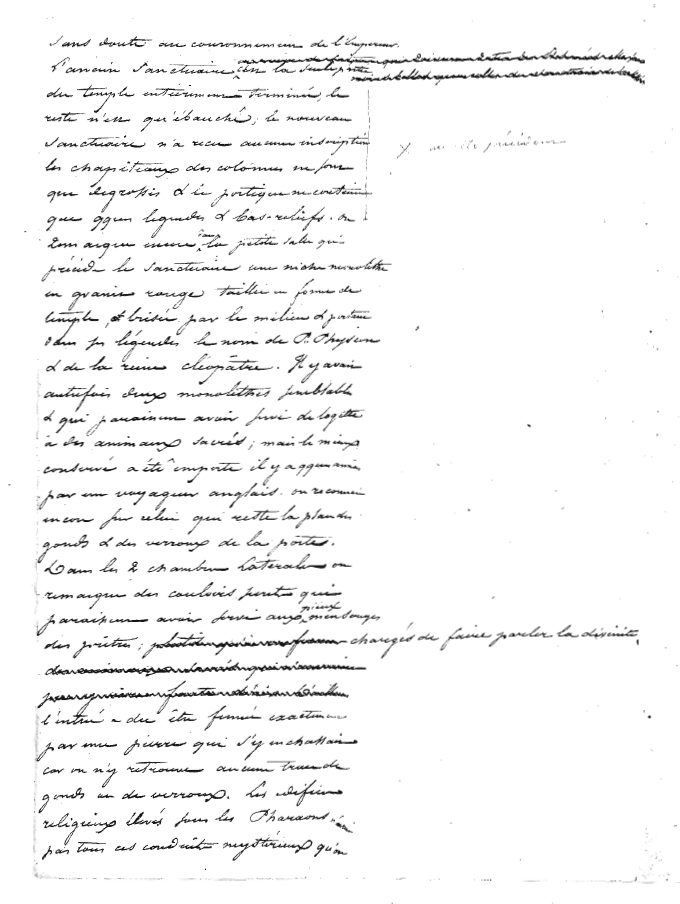 sans doute au couronnement de l'Empereur.
L'ancien Sanctuaire est la seule partie
du temple entièrement terminée, le
reste n'est qu'ébauché; le nouveau
Sanctuaire n'a recu aucune inscription
les chapiteaux des colonnes ne sont
que degrossis & le portique ne contient
que qques legendes & bas-reliefs. on
remarque encore dans la petite salle qui
précède le Sanctuaire une niche monolithe
en granit rouge taillée en forme de
temple, & brisée par le milieu & portant
dans ses légendes le nom de P. Physcon
& de la reine cléopâtre. Il y avait
autrefois deux monolithes semblables
& qui paraissent avoir servi de logette
à des animaux sacrés; mais le mieux
conservé a été emporté il y a qques années
par un voyageur anglais. on reconnait
encore sur celui qui reste la place des
gonds & des verroux de la porte.
Dans les 2 chambres Laterales on
remarque des couloirs secrets qui
paraissent avoir servi aux pieux mensonges
des prêtres; chargés de faire parler la divinité,
l'entrée a du être fermée exactement
par une pierre qui s'y enchassait
car on n'y retrouve aucune trace de
gonds ou de verroux. Les édifices
religieux élevés sous les Pharaons n'ont
pas tous ces conduits mystérieux qu'on